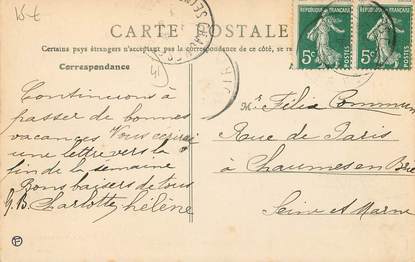 15 €
CARTE POSTALE
Certains pays étrangers n'acceptent pas la correspondance de ce côté, se
Correspondance
41
Continuons à
passer de bonnes
vacances Vous écrirai
une lettre vers la
fin de la semaine
Bons baisers de tous
Charlotte, hélène
RÉPUBLIQUE FRANÇAISE
5c
POSTES
RÉPUBLIQUE FRANÇAISE
5c
POSTES
Mr Félix Commun
Rue de Paris
à Chaumes en Brie
Seine et Marne